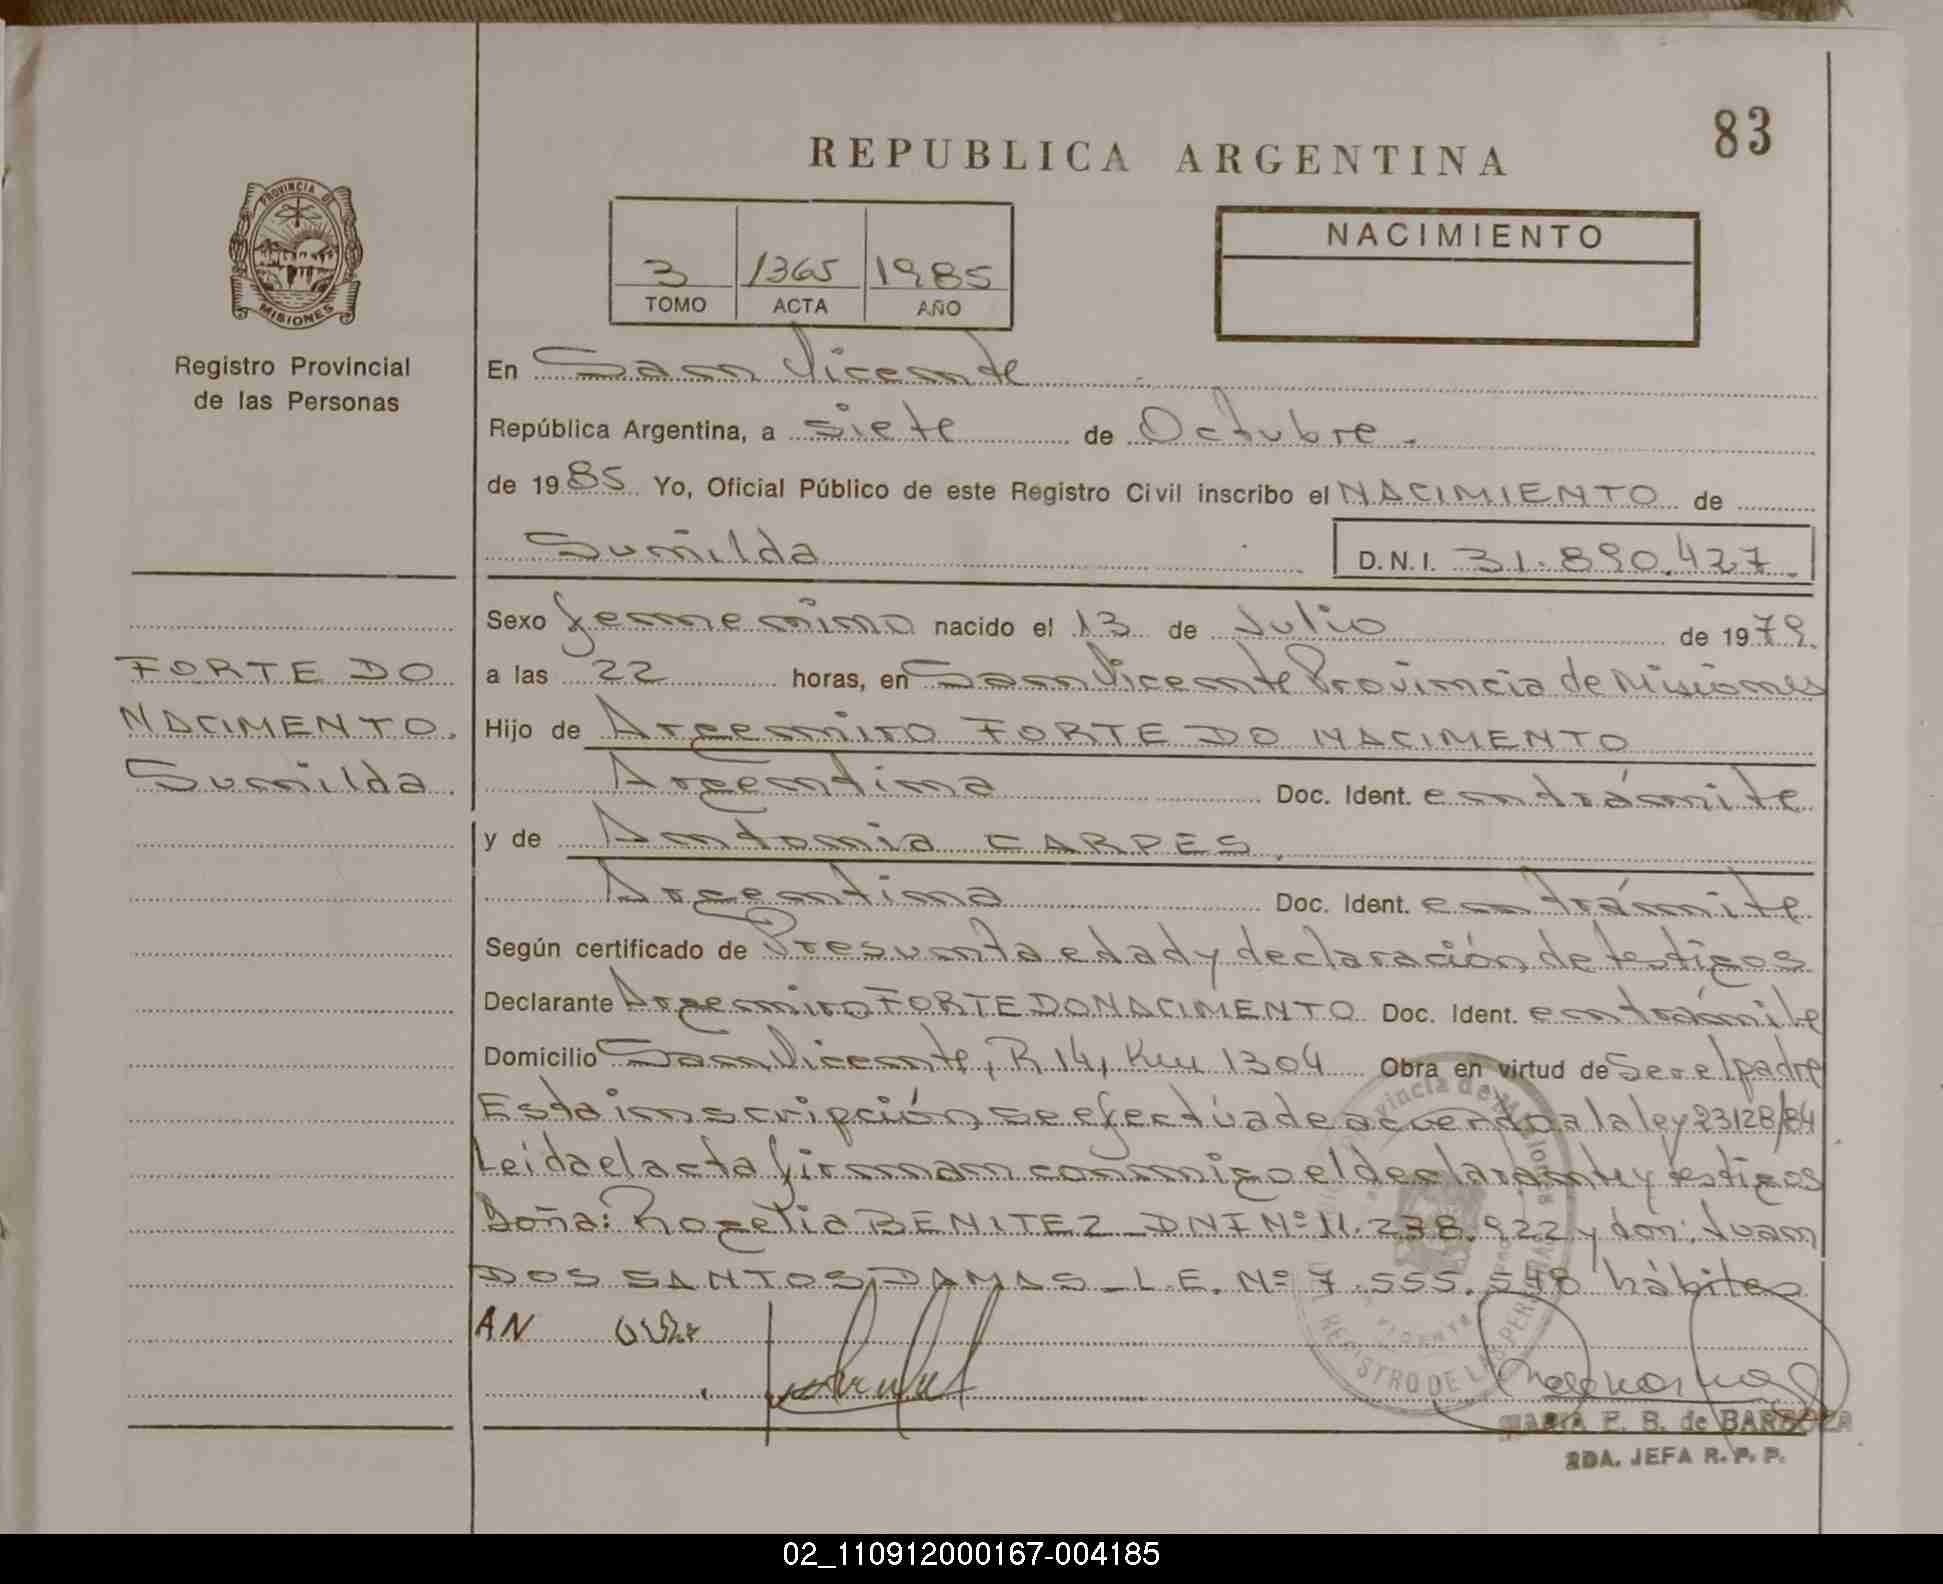 83
REPUBLICA ARGENTINA
PROVINCIA DE
MISIONES
Registro Provincial
de las Personas
3 1365 1985
TOMO ACTA AÑO
NACIMIENTO
En San Vicente
República Argentina, a siete de Octubre.
de 1985 Yo, Oficial Público de este Registro Civil inscribo el NACIMIENTO de
Sunilda D.N.I. 31.890.427.
Sexo femenino nacido el 13 de Julio de 1979.
a las 22 horas, en San Vicente Provincia de Misiones
FORTE DO
NACIMENTO,
Sunilda.
Hijo de Argemiro FORTE DO NACIMENTO
Argentina Doc. Ident. en trámite
y de Antonia CARPES,
Argentina Doc. Ident. en trámite
Según certificado de Presunta edad y declaración de testigos
Declarante Argemiro FORTE DO NACIMENTO Doc. Ident. en trámite
Domicilio San Vicente, R.14, Km 1304 Obra en virtud de Ser el padre
Esta inscripción se efectúa de acuerdo a la ley 23128/84
Leída el acta firman conmigo el declarante y testigos
Doña: Rogelia BENITEZ_DNI Nº 11.238.922 y don: Juan
DOS SANTOS DAMAS_L.E. Nº 7.555.548 hábiles
AN
Provincia de Misiones
REGISTRO DE LAS PERSONAS
MARIA E. B. de BARBOZA
2DA. JEFA R. P. P.
02_110912000167-004185